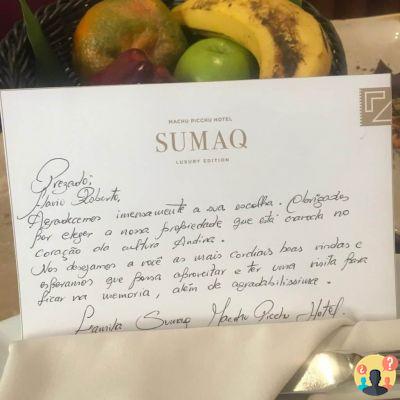 MACHU PICCHU HOTEL
SUMAQ
LUXURY EDITION
Prezado:
Flavio Roberto,
Agradecemos imensamente a sua escolha. Obrigados
por eleger a nossa propriedade que está cravada no
coração da cultura Andina.
Nos desejamos a você as mais cordiais boas vindas e
esperamos que possa aproveitar e ter uma visita para
ficar na memoria, além de agradabilissima.
Família Sumaq Machu Picchu Hotel.